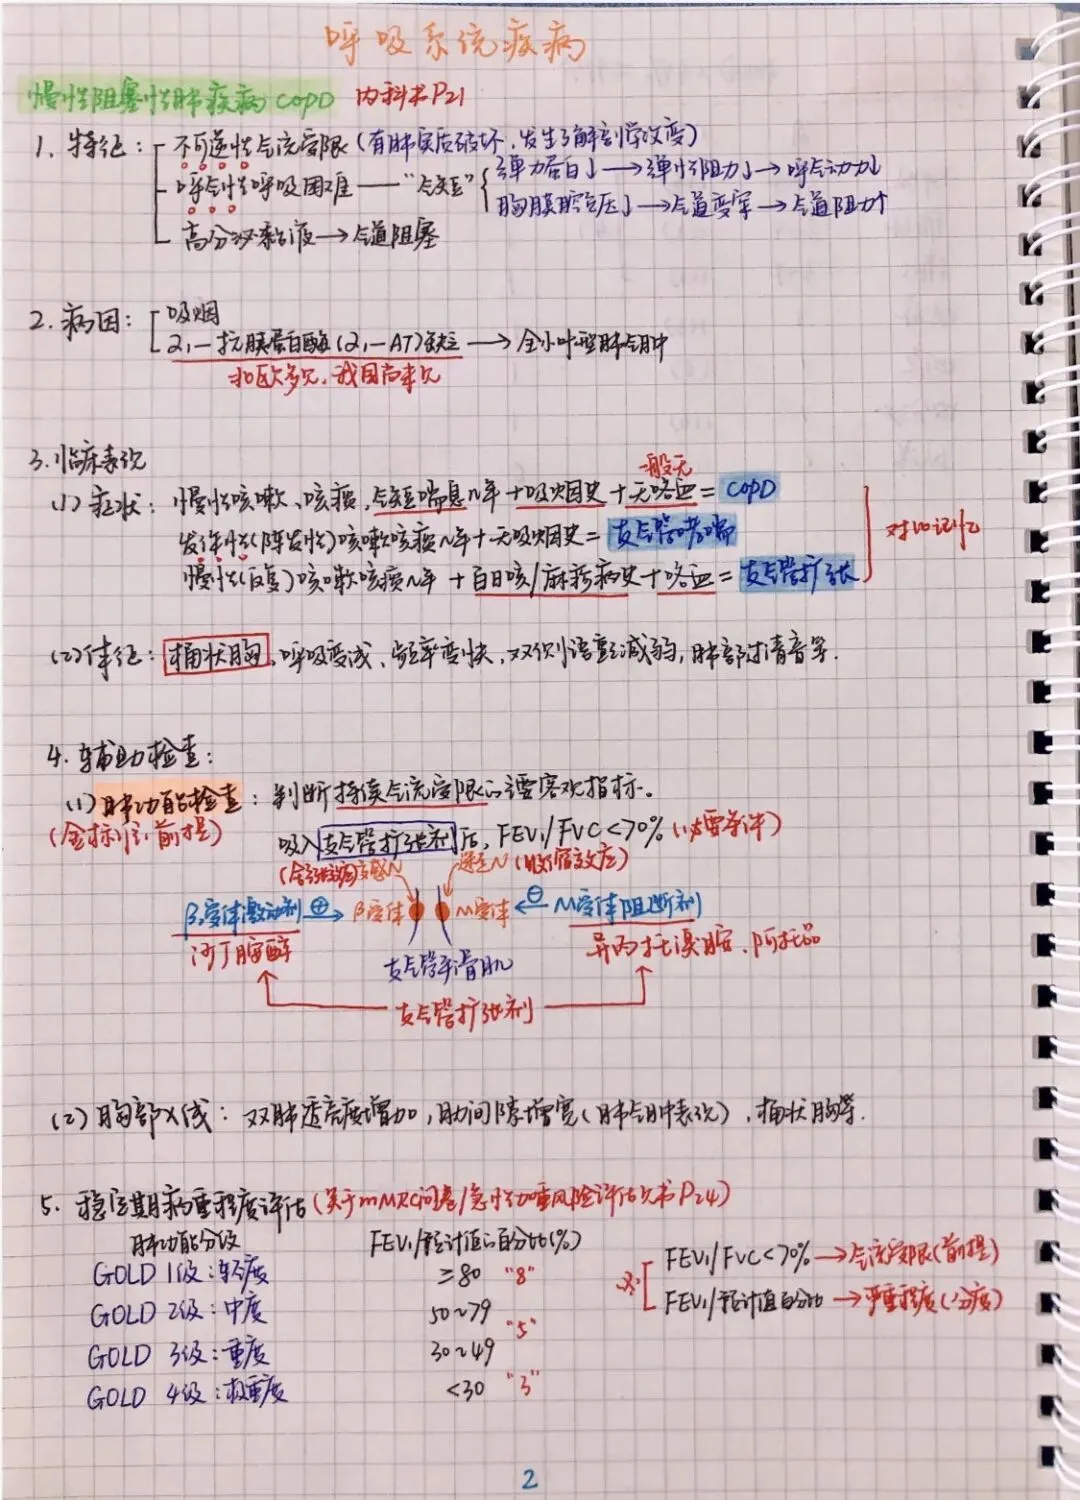 呼吸系统疾病
慢性阻塞性肺疾病 COPD 内科书P21
1. 特征: 不可逆性气流受限 (有肺实质破坏, 发生了解剖学改变)
呼气性呼吸困难——"气短" 弹力蛋白↓→弹性阻力↓→呼气动力↓
胸膜腔负压↓→气道变窄→气道阻力↑
高分泌黏液→气道阻塞
2. 病因: 吸烟
α₁-抗胰蛋白酶 (α₁-AT) 缺乏→全小叶型肺气肿
北欧多见, 我国尚未见
3. 临床表现
一般无
(1) 症状: 慢性咳嗽、咳痰, 气短喘息n年+吸烟史+无咯血= COPD
发作性(阵发性)咳嗽咳痰n年+无吸烟史= 支气管哮喘
对比记忆
慢性(反复)咳嗽咳痰n年+百日咳/麻疹病史+咯血= 支气管扩张
(2) 体征: 桶状胸, 呼吸变浅、频率变快, 双侧语颤减弱, 肺部过清音等.
4. 辅助检查:
(1) 肺功能检查: 判断持续气流受限的主要客观指标。
(金标准, 前提) 吸入支气管扩张剂后, FEV₁/FVC<70% (必要条件)
(舒张效应)交感N 迷走N (收缩效应)
β₂受体激动剂 ⊕→ β₂受体 M受体 ←⊖ M受体阻断剂
沙丁胺醇 支气管平滑肌 异丙托溴胺, 阿托品
支气管扩张剂
(2) 胸部X线: 双肺透亮度增加, 肋间隙增宽 (肺气肿表现), 桶状胸等.
5. 稳定期病重程度评估 (关于mMRC问卷/急性加重风险评估见书P24)
肺功能分级 FEV₁/预计值的百分比(%)
GOLD 1级: 轻度 ≥80 "8"
GOLD 2级: 中度 50~79
"5"
GOLD 3级: 重度 30~49
GOLD 4级: 极重度 <30 "3"
※ FEV₁/FVC<70%→气流受限(前提)
FEV₁/预计值百分比→严重程度(分度)
2